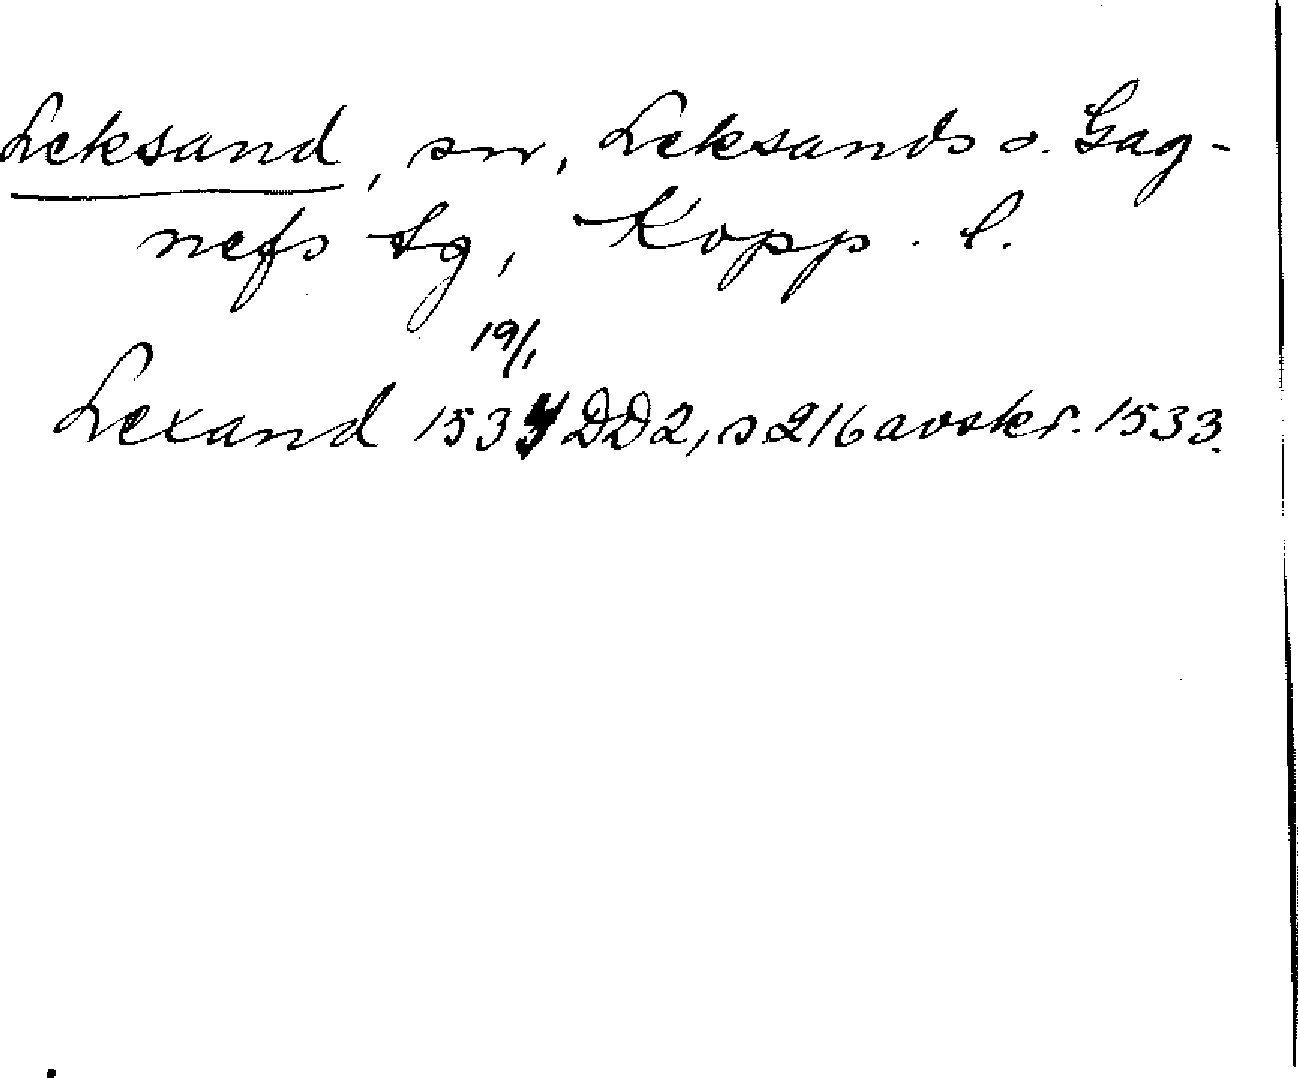 Leksand, sn, Leksands o. Gag-
nefs tg, Kopp. l.
19/1
Lexand 1533 DD2, s 216 avskr. 1533.